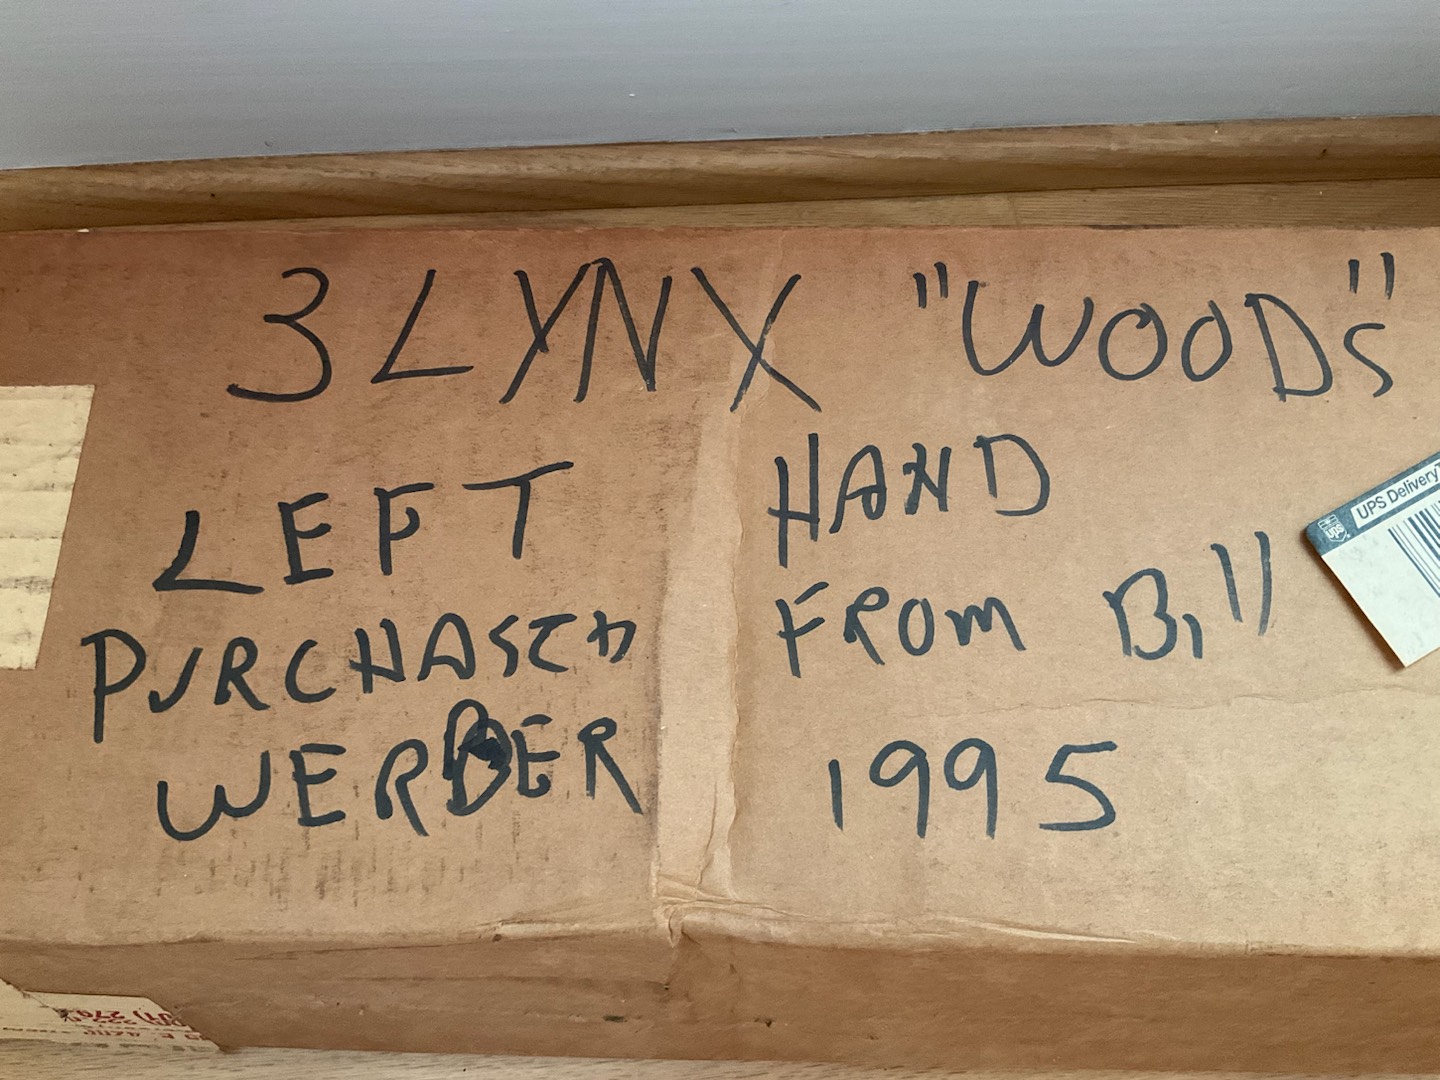 3 LYNX "WOODs"
LEFT HAND
PURCHASED FROM Bill
WERBER 1995
UPS Delivery
ups